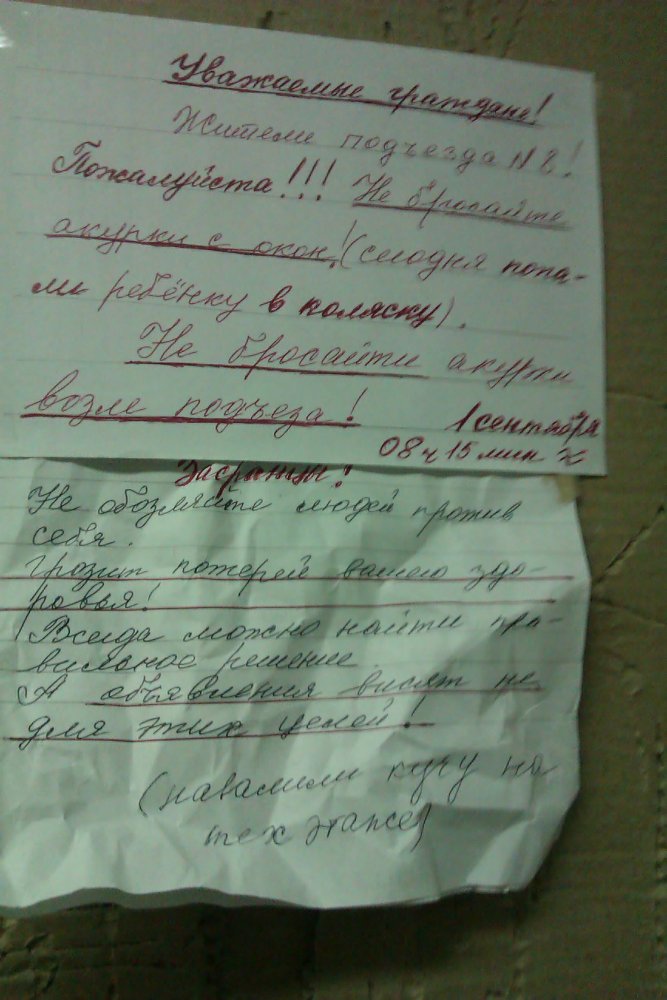 Уважаемые граждане!
Жители подъезда N 2!
Пожалуйста!!! Не бросайте
акурки с окон! (сегодня попа-
ли ребёнку в коляску).
Не бросайти акурки
возле подъеза!
1 сентября
08 ч 15 мин
Засранцы!
Не обозляйте людей против
себя.
Грозит потерей вашего здо-
ровья!
Всегда можно найти пра-
вильное решение.
А объявления висят не
для этих целей!
(навалили кучу на
тех этаже)